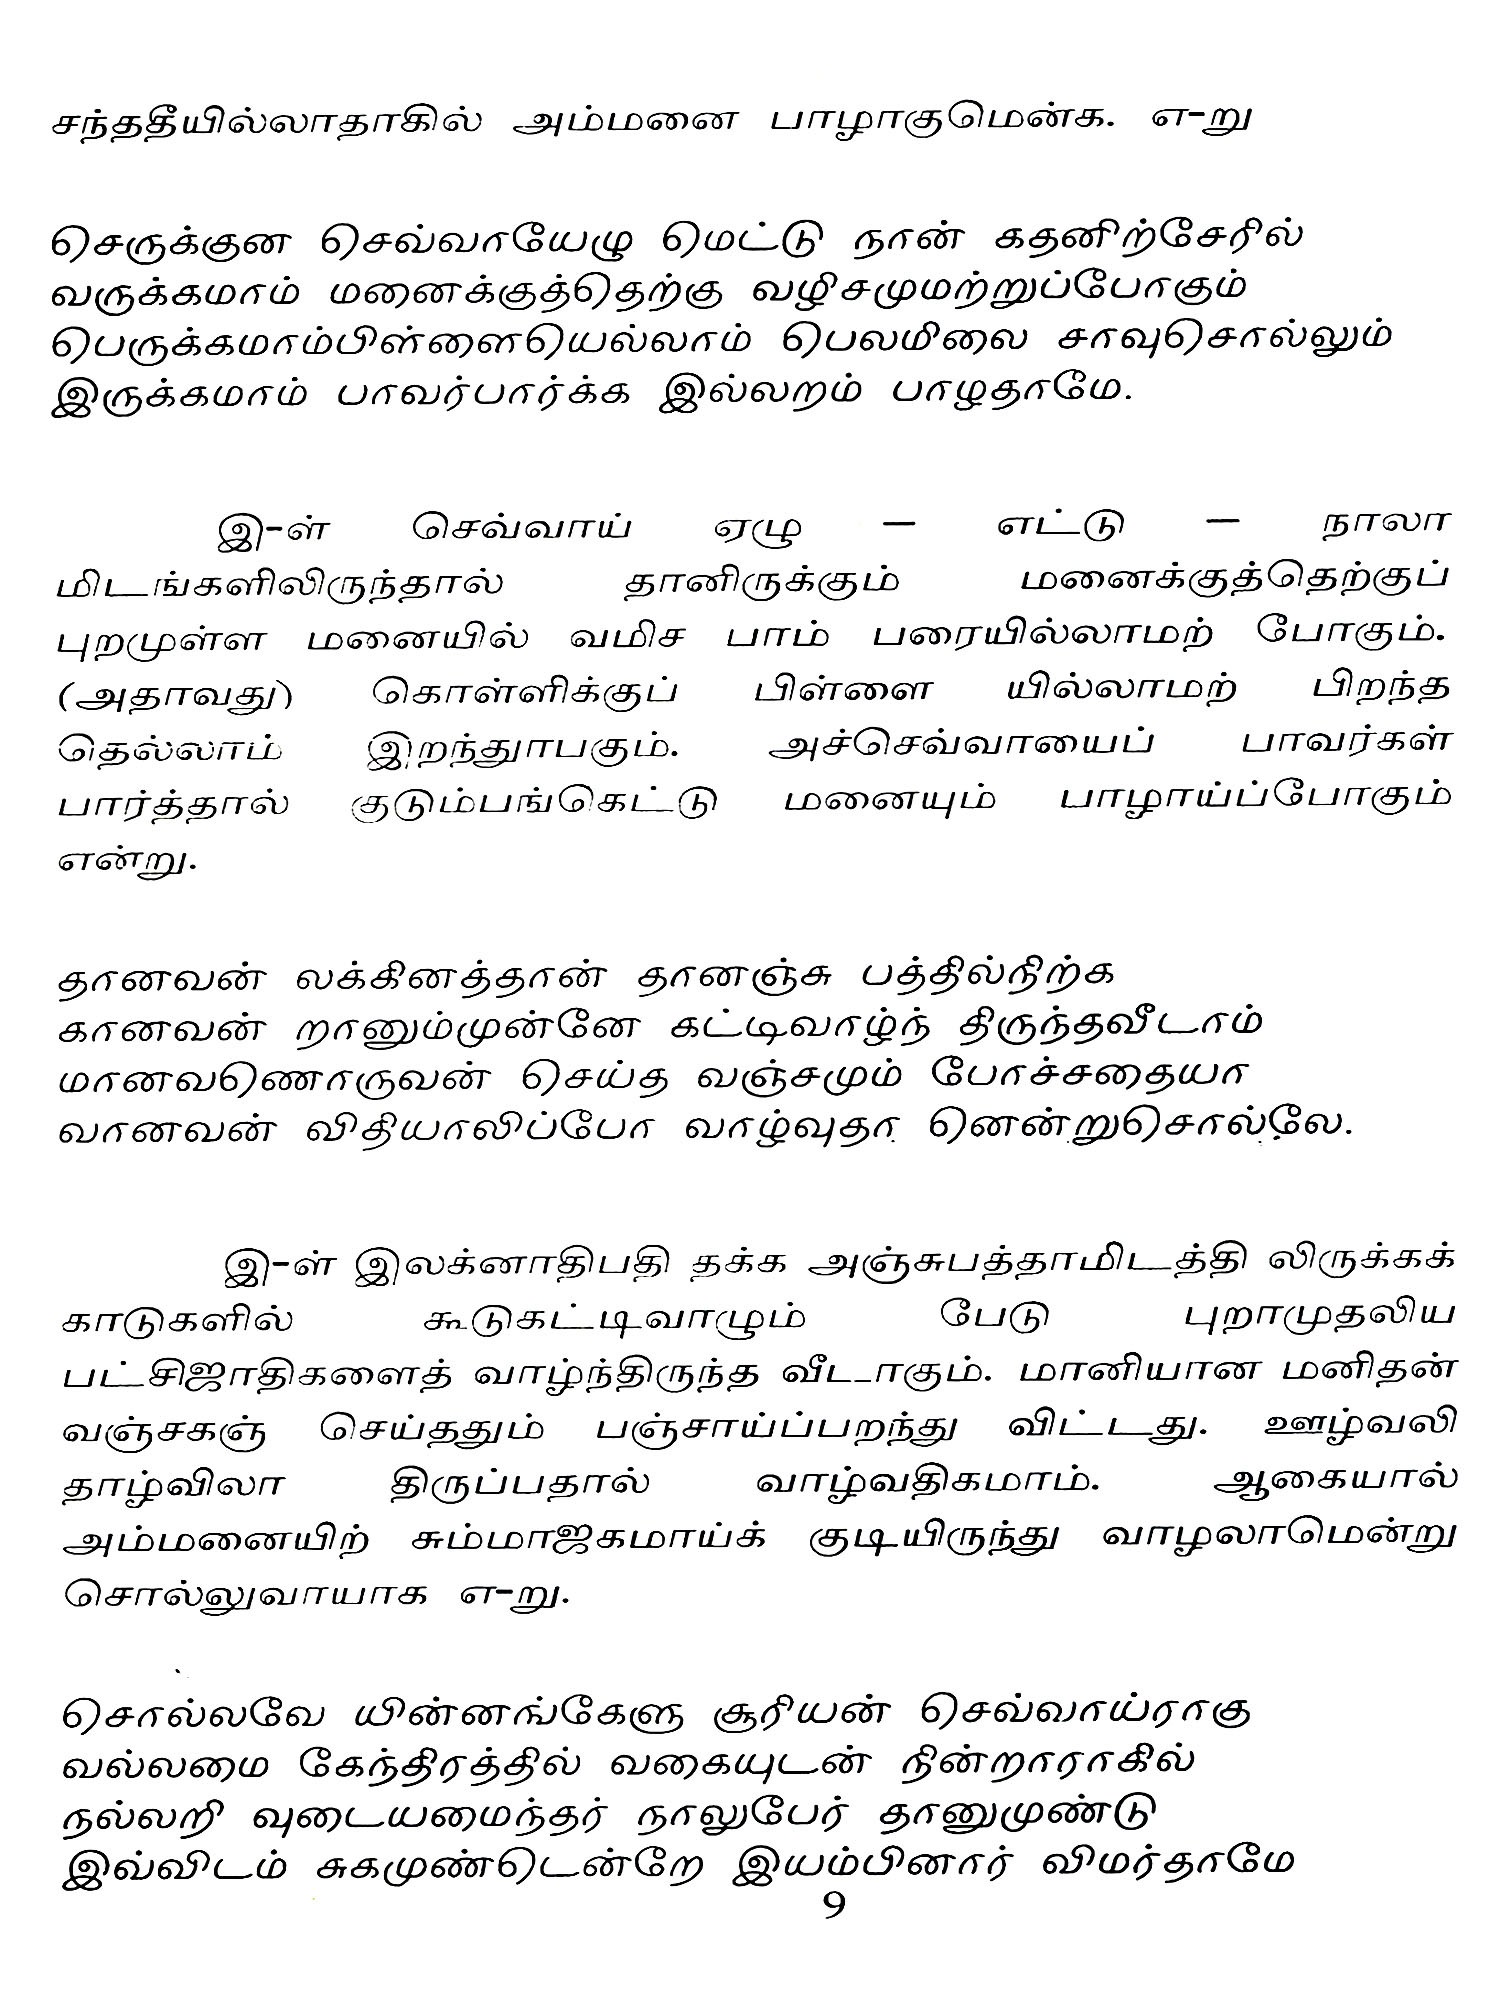 சந்ததீயில்லாதாகில் அம்மனை பாழாகுமென்க. எ-று
செருக்குன செவ்வாயேழு மெட்டு நான் கதனிற்சேரில்
வருக்கமாம் மனைக்குத்தெற்கு வழிசமுமற்றுப்போகும்
பெருக்கமாம்பிள்ளையெல்லாம் பெலமிலை சாவுசொல்லும்
இருக்கமாம் பாவர்பார்க்க இல்லறம் பாழதாமே.
இ-ள் செவ்வாய் ஏழு — எட்டு — நாலா
மிடங்களிலிருந்தால் தானிருக்கும் மனைக்குத்தெற்குப்
புறமுள்ள மனையில் வமிச பாம் பரையில்லாமற் போகும்.
(அதாவது) கொள்ளிக்குப் பிள்ளை யில்லாமற் பிறந்த
தெல்லாம் இறந்துாபகும். அச்செவ்வாயைப் பாவர்கள்
பார்த்தால் குடும்பங்கெட்டு மனையும் பாழாய்ப்போகும்
என்று.
தானவன் லக்கினத்தான் தானஞ்சு பத்தில்நிற்க
கானவன் றானும்முன்னே கட்டிவாழ்ந் திருந்தவீடாம்
மானவணொருவன் செய்த வஞ்சமும் போச்சதையா
வானவன் விதியாலிப்போ வாழ்வுதா னென்றுசொல்லே.
இ-ள் இலக்னாதிபதி தக்க அஞ்சுபத்தாமிடத்தி லிருக்கக்
காடுகளில் கூடுகட்டிவாழும் பேடு புறாமுதலிய
பட்சிஜாதிகளைத் வாழ்ந்திருந்த வீடாகும். மானியான மனிதன்
வஞ்சகஞ் செய்ததும் பஞ்சாய்ப்பறந்து விட்டது. ஊழ்வலி
தாழ்விலா திருப்பதால் வாழ்வதிகமாம். ஆகையால்
அம்மனையிற் சும்மாஜகமாய்க் குடியிருந்து வாழலாமென்று
சொல்லுவாயாக எ-று.
சொல்லவே யின்னங்கேளு சூரியன் செவ்வாய்ராகு
வல்லமை கேந்திரத்தில் வகையுடன் நின்றாராகில்
நல்லறி வுடையமைந்தர் நாலுபேர் தானுமுண்டு
இவ்விடம் சுகமுண்டென்றே இயம்பினார் விமர்தாமே
9